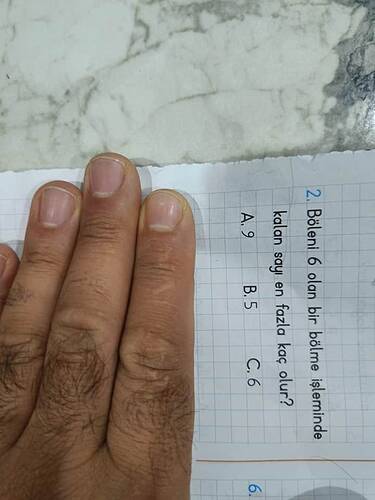 2. Böleni 6 olan bir bölme işleminde
kalan sayı en fazla kaç olur?
A. 9 B. 5 C. 6
6.